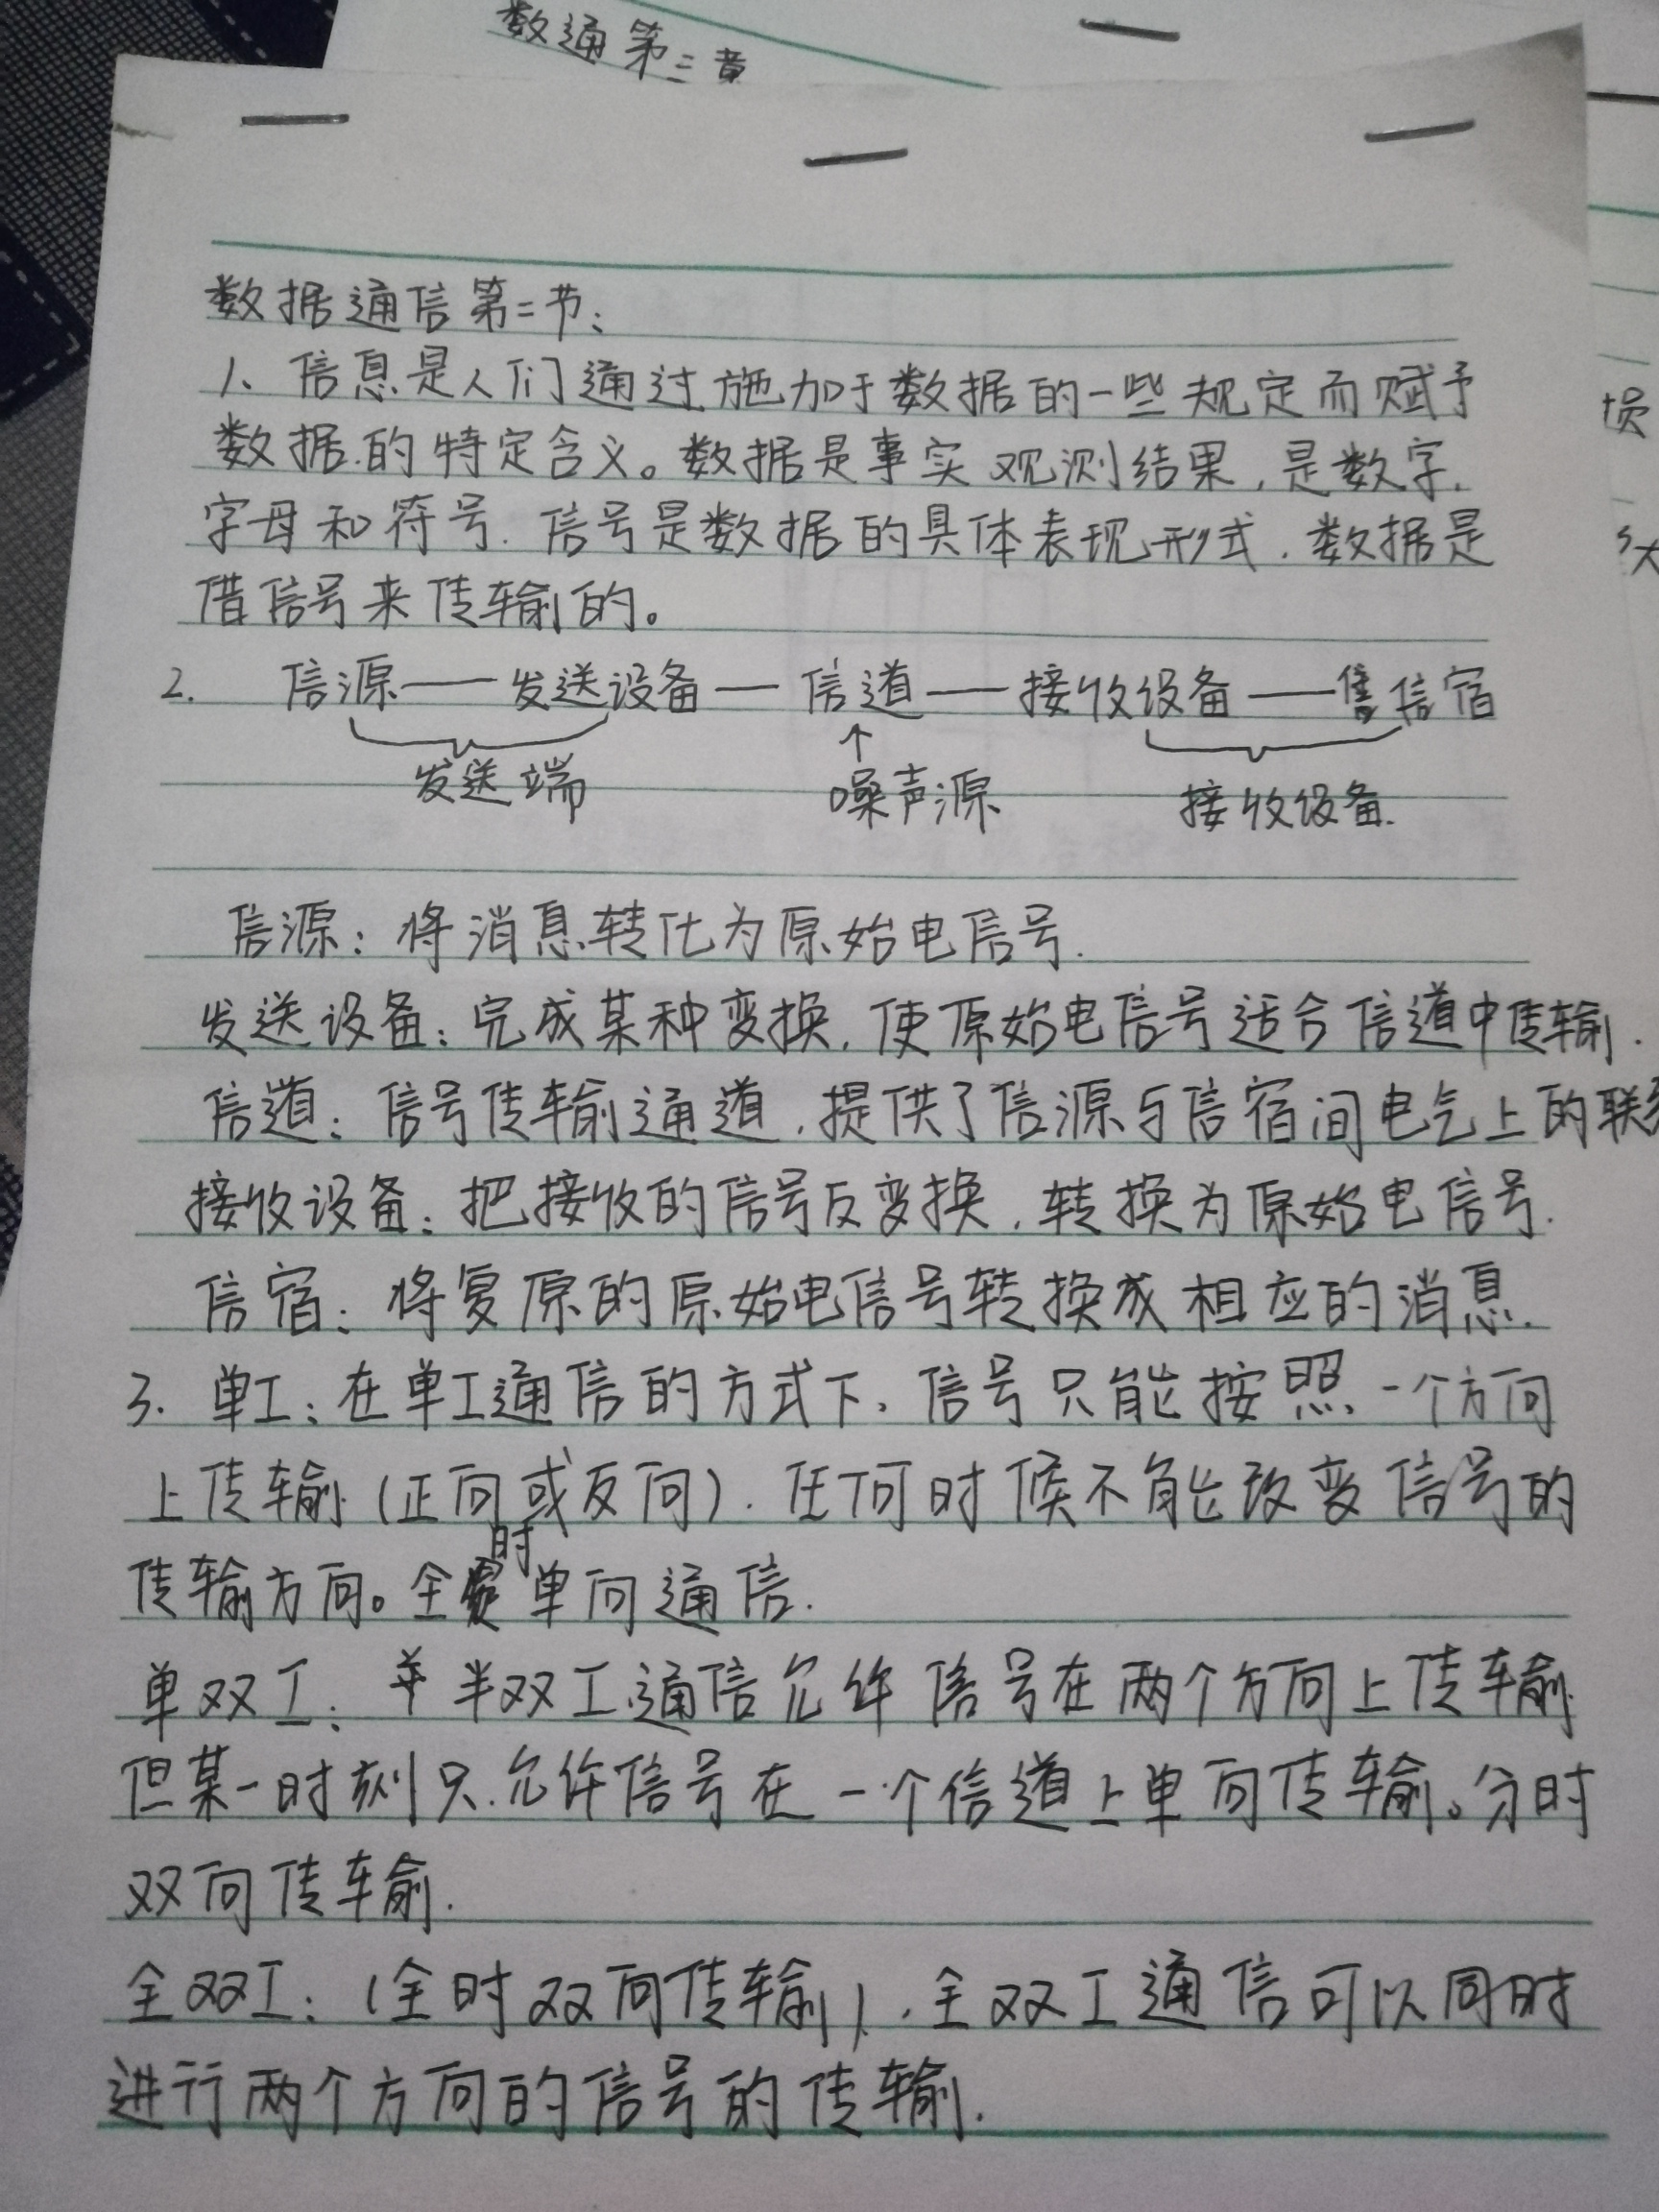 数通第三章
数据通信第二节:
1、信息是人们通过施加于数据的一些规定而赋予
数据的特定含义。数据是事实观测结果,是数字.
字母和符号.信号是数据的具体表现形式.数据是
借信号来传输的。
2. 信源——发送设备—信道——接收设备——信宿
↑
发送端 噪声源 接收设备.
信源:将消息转化为原始电信号.
发送设备:完成某种变换,使原始电信号适合信道中传输.
信道:信号传输通道,提供了信源与信宿间电气上的联
接收设备:把接收的信号反变换,转换为原始电信号.
信宿:将复原的原始电信号转换成相应的消息.
3. 单工:在单工通信的方式下,信号只能按照一个方向
上传输(正向或反向).任何时候不能改变信号的
传输方向。全时单向通信.
单双工:半双工通信允许信号在两个方向上传输
但某一时刻只允许信号在一个信道上单向传输。分时
双向传输.
全双工:(全时双向传输).全双工通信可以同时
进行两个方向的信号的传输.
损